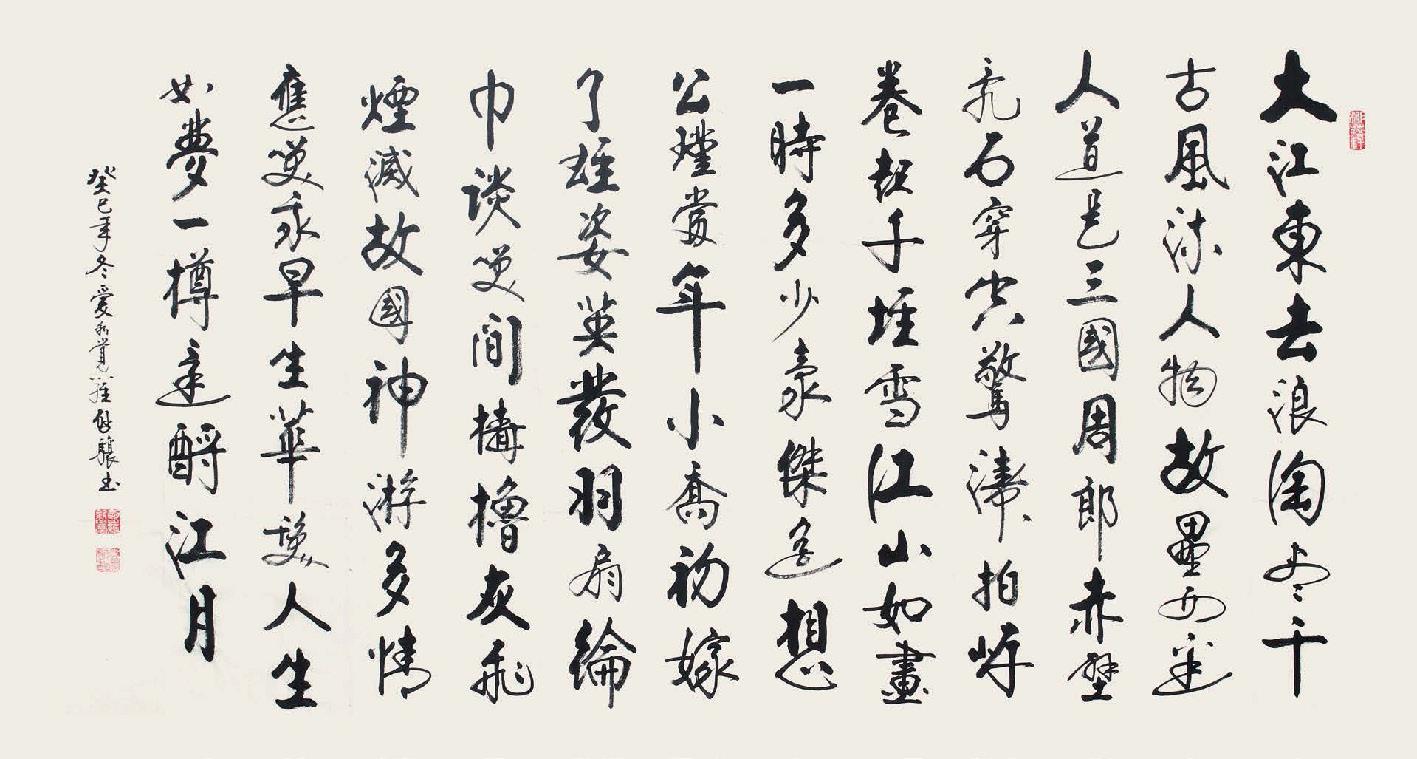 大江東去浪淘盡千
古風流人物故壘西邊
人道是三國周郎赤壁
亂石穿空驚濤拍岸
卷起千堆雪江山如畫
一時多少豪傑遙想
公瑾當年小喬初嫁
了雄姿英發羽扇綸
巾談笑間檣櫓灰飛
煙滅故國神游多情
應笑我早生華髮人生
如夢一樽還酹江月
癸巳年冬愛新覺羅啟驤書